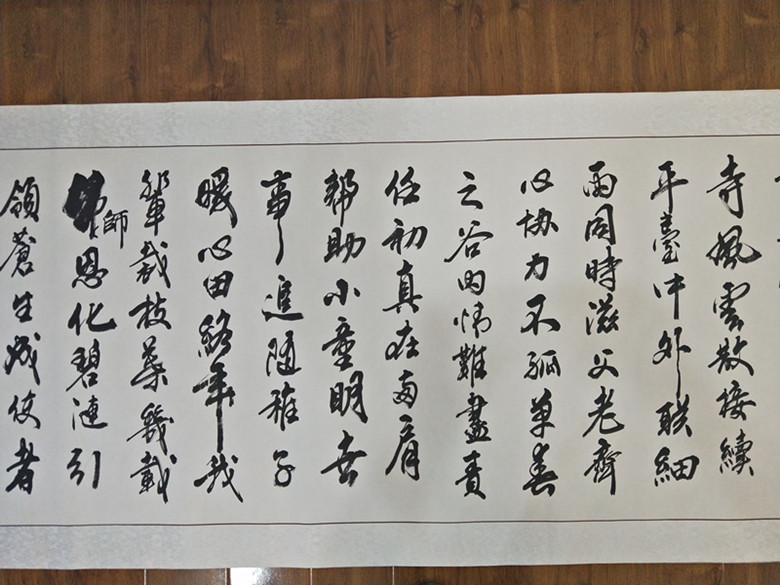 寺風雲散接續
平臺中外联細
雨同時滋父老齊
心协力不孤單春
之谷内情難盡責
任初真在両肩
幇助小童明世
事追随稚子
暖心田經年我
輩栽枝葉幾載
師恩化碧漣引
領蒼生成使者